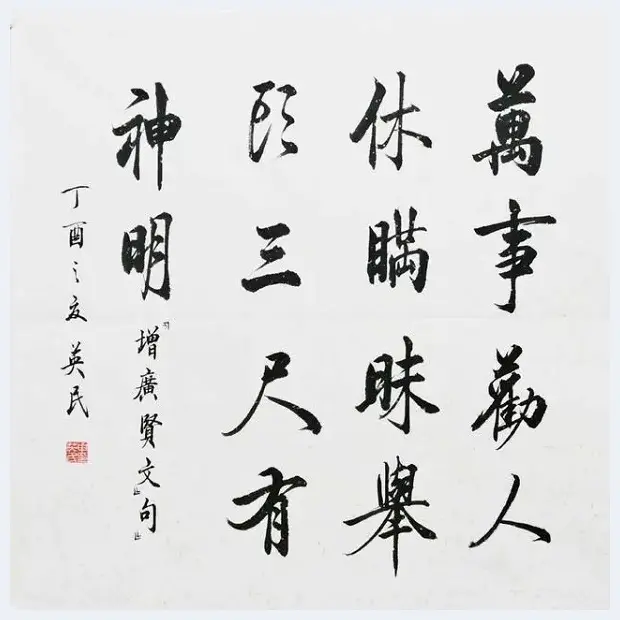 萬事勸人
休瞞昧舉
頭三尺有
神明『增廣賢文』句
丁酉之夏英民